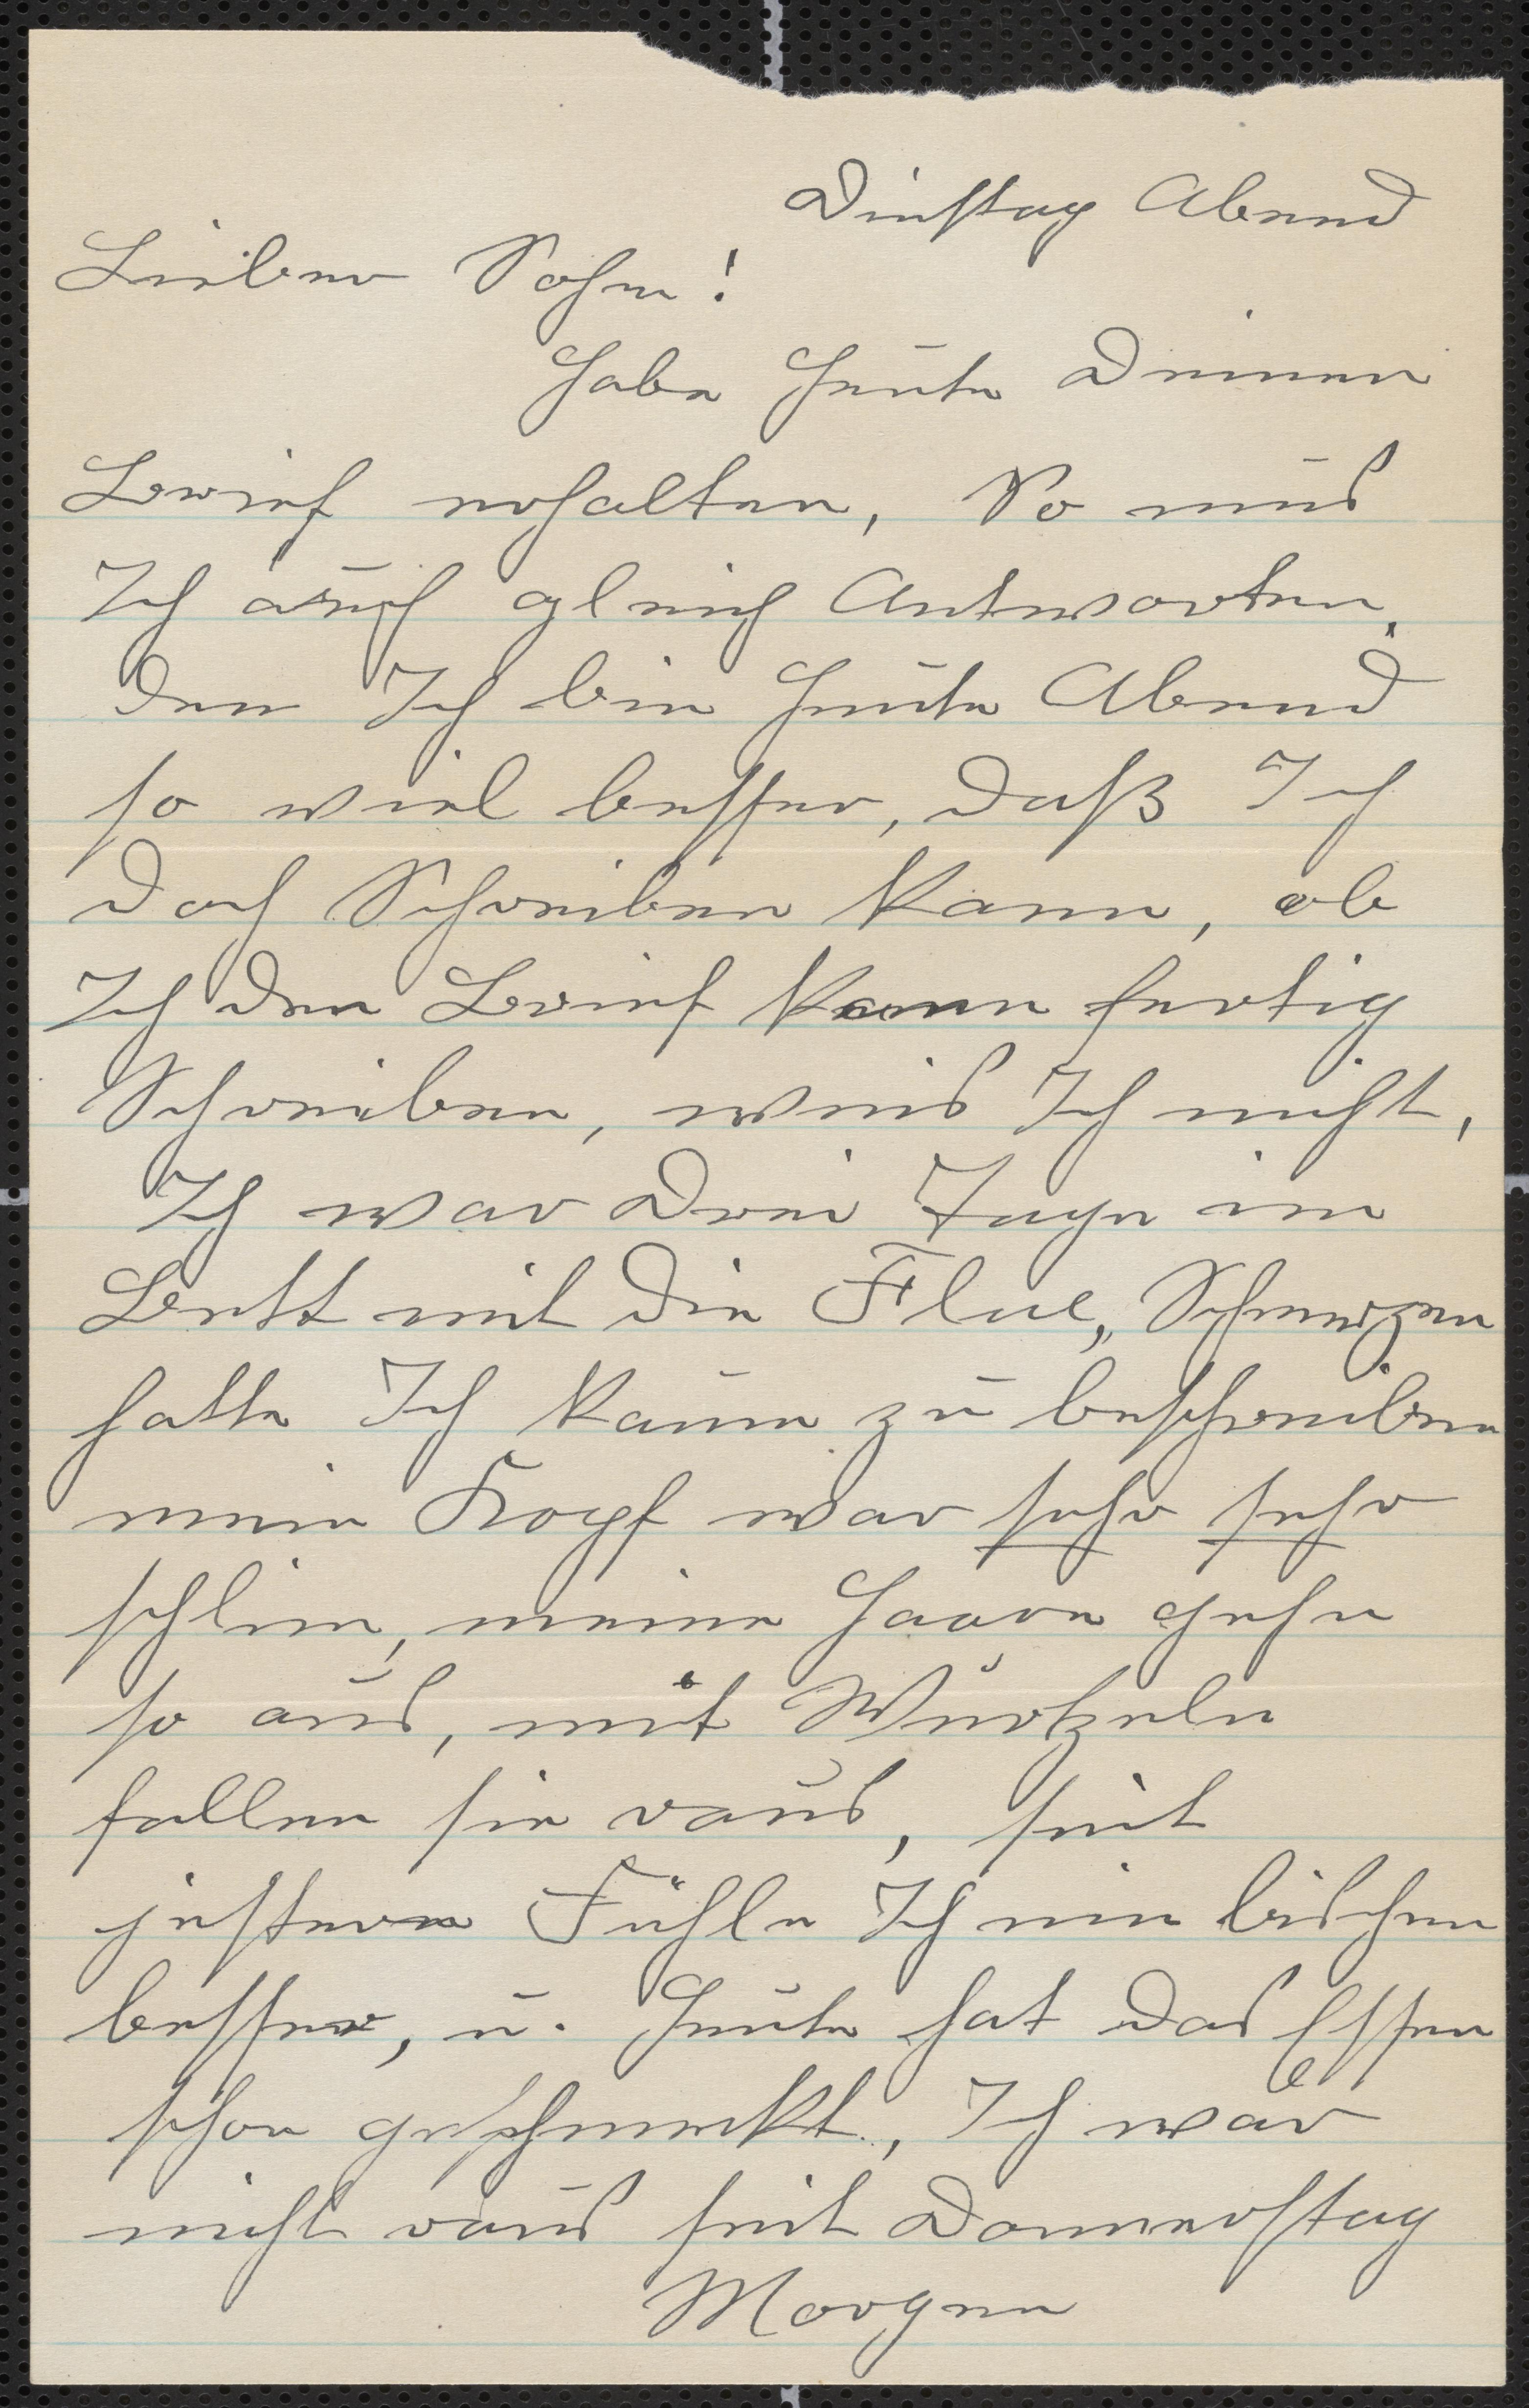 Dinstag Abend
Lieber Sohn!
Habe heute Deinen
Brief erhalten, So mus
Ich auch gleich Antworten,
den Ich bin heute Abend
so viel besser, daß Ich
doch Schreiben kann, ob
Ich den Brief kann fertig
Schreiben, weis Ich nicht,
Ich war Drei Tage im
Bett mit die Flue, Schmerzen
hatte Ich kaum zu beschreiben
mein Kopf war sehr sehr
schlim, meine Haare gehn
so aus, mit Würtzeln
fallen sie raus, seit
jestern Fühle Ich ein bischen
besser, u. heute hat das Essen
schon geschmeckt, Ich war
nicht raus seit Donnerstag
Morgen